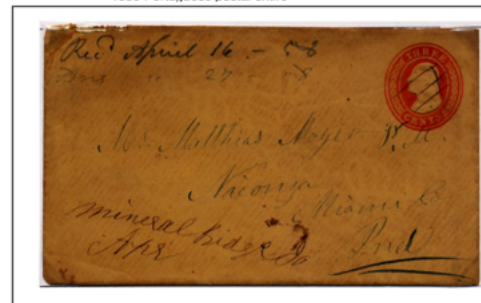 Recd April 16 - 58
Ans " 27 - 58
THREE
CENTS
Mr. Matthias Moyer P. M.
Niconza
Miami Co
Ind
Mineral Ridge O
Apr